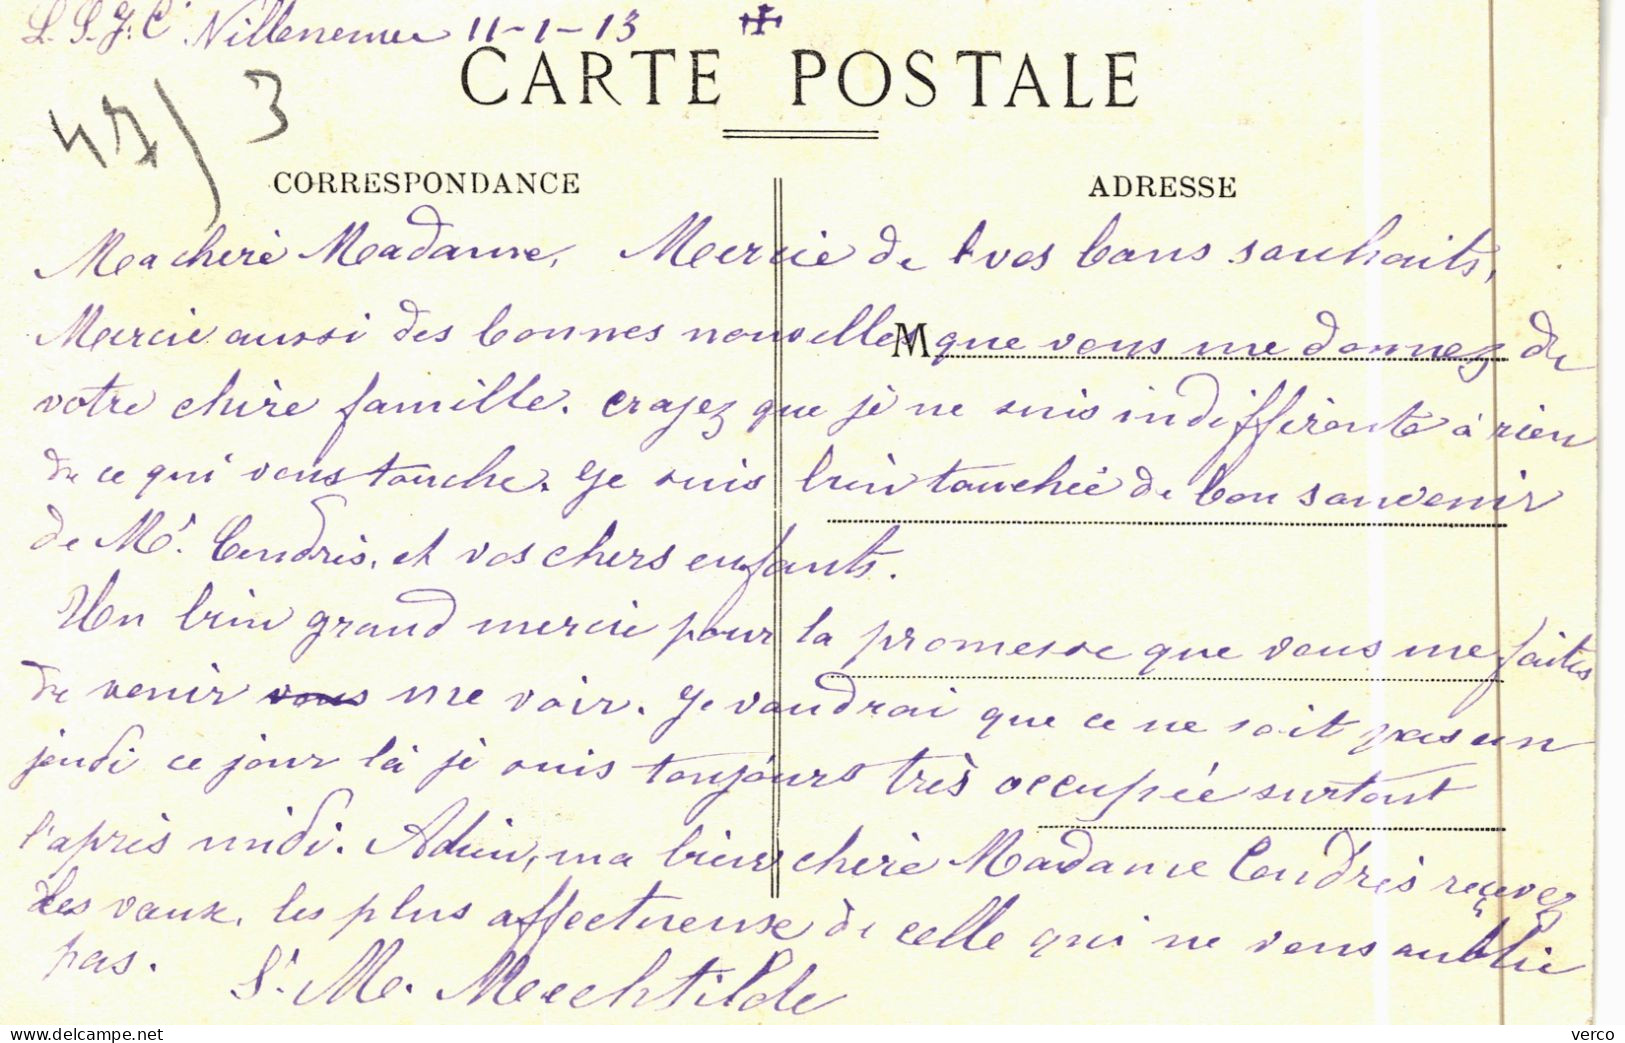 L. S. J. C. Villeneuve 11-1-13
47/3
CARTE POSTALE
CORRESPONDANCE
ADRESSE
Ma chère Madame, Mercie de vos bons souhaits,
Mercie aussi des bonnes nouvelles que vous me donnez de
M
votre chère famille. croyez que je ne suis indifférente à rien
de ce qui vous touche. Je suis bien touchée de bon souvenir
de Mr. Coudris, et vos chers enfants.
Un bien grand mercie pour la promesse que vous me faites
de venir vous me voir. Je voudrai que ce ne soit pas un
jeudi ce jour là je suis toujours très occupée surtout
l'après midi. Adieu, ma bien chère Madame Coudrès recevez
les vœux, les plus affectueux de celle qui ne vous oublie
pas.
Sr. M. Mechtilde
verco